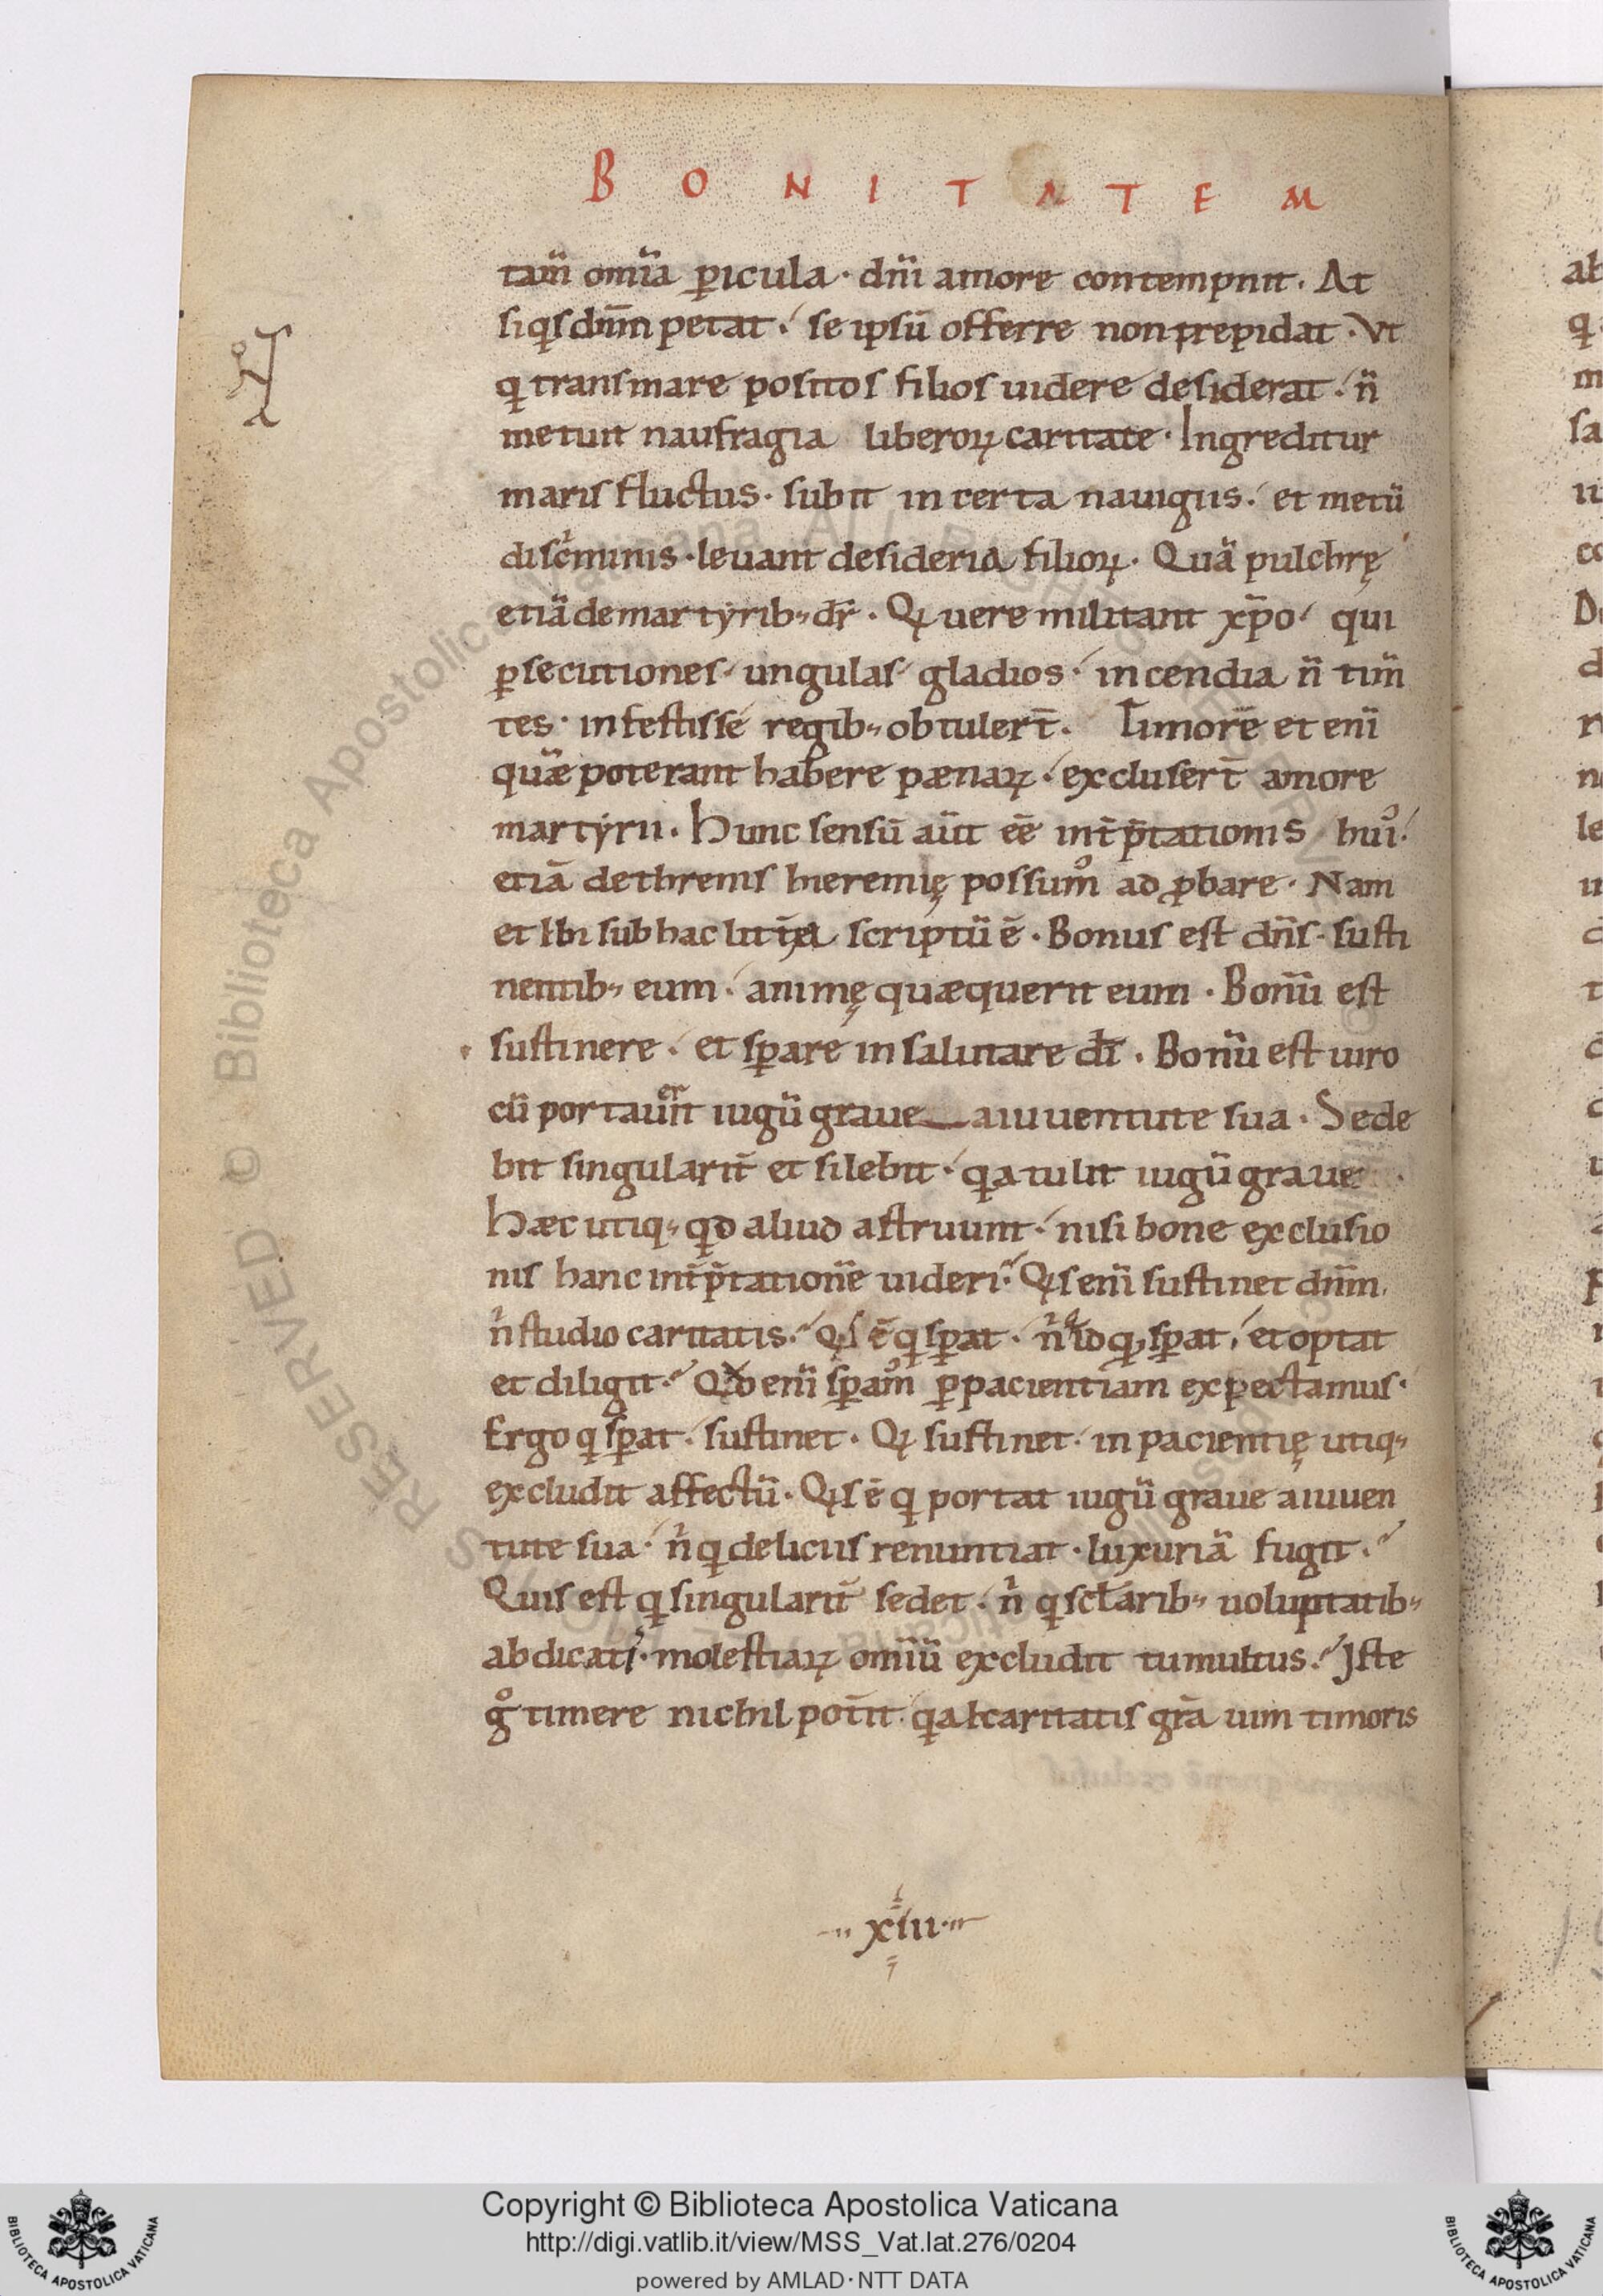 B O N I T A T E M
tam̃ omĩa ꝑicula · dñi amore contempnit . At
si qͥs dñm petat . se ipsũ offerre non trepidat . Vt
qͥ trans mare positos filios uidere desiderat . ñ
metuit naufragia liberoꝝ caritate . Ingreditur
maris fluctus . subit incerta nauigiis . et metũ
discͥminis . leuant desideria filioꝝ . Quã pulchrę
etiã de martyrib; dr̃ . Qͥ uere militant xp̃o qui
ꝑsecutiones ungulas gladios . incendia ñ tim̃
tes . infestis se regib; obtulerт̃ . Timorẽ et enĩ
quẽ poterant habere pænaꝝ . exclusert̃ amore
martyrii . Hunc sensũ aũt eẽ int̃p̃tationis huiꝰ
etiã de threnis hieremię possumꝰ ad ꝓbare . Nam
et ibi sub hac litt̃a scriptũ ẽ . Bonus est dñs . susti
nentib; eum . animę quæ querit eum . Bonũ est
sustinere . et sꝑare in salutare dĩ . Bonũ est uiro
cũ portauerit iugũ graue a iuuentute sua . Sede
bit singularit̃ et silebit . qͥa tulit iugũ graue .
Hæc utiq; qͥd aliud astruunt . nisi bone exclusio
nis hanc int̃p̃tationẽ uideri . Qͥs enĩ sustinet dñm
nͥ studio caritatis . Qͥs ẽ qͥ sꝑat . nͥ qͥ id qͩ sꝑat . et optat
et diligit . Qͩ enĩ sꝑamꝰ ꝑ pacientiam expectamus .
Ergo qͥ sꝑat . sustinet . Qͥ sustinet . in pacientię utiq;
excludit affectũ . Qͥs ẽ qͥ portat iugũ graue a iuuen
tute sua . nͥ qͥ deliciis renuntiat . luxuriã fugit .
Quis est qͥ singularit̃ sedet . nͥ qͥ scłarib; uoluptatib;
abdicatis . molestiaꝝ omĩũ excludit tumultus . Iste
gͦ timere nichil pot̃it . qͥa caritatis gr̃a uim timoris
xiiii
Copyright © Biblioteca Apostolica Vaticana
http://digi.vatlib.it/view/MSS_Vat.lat.276/0204
powered by AMLAD·NTT DATA